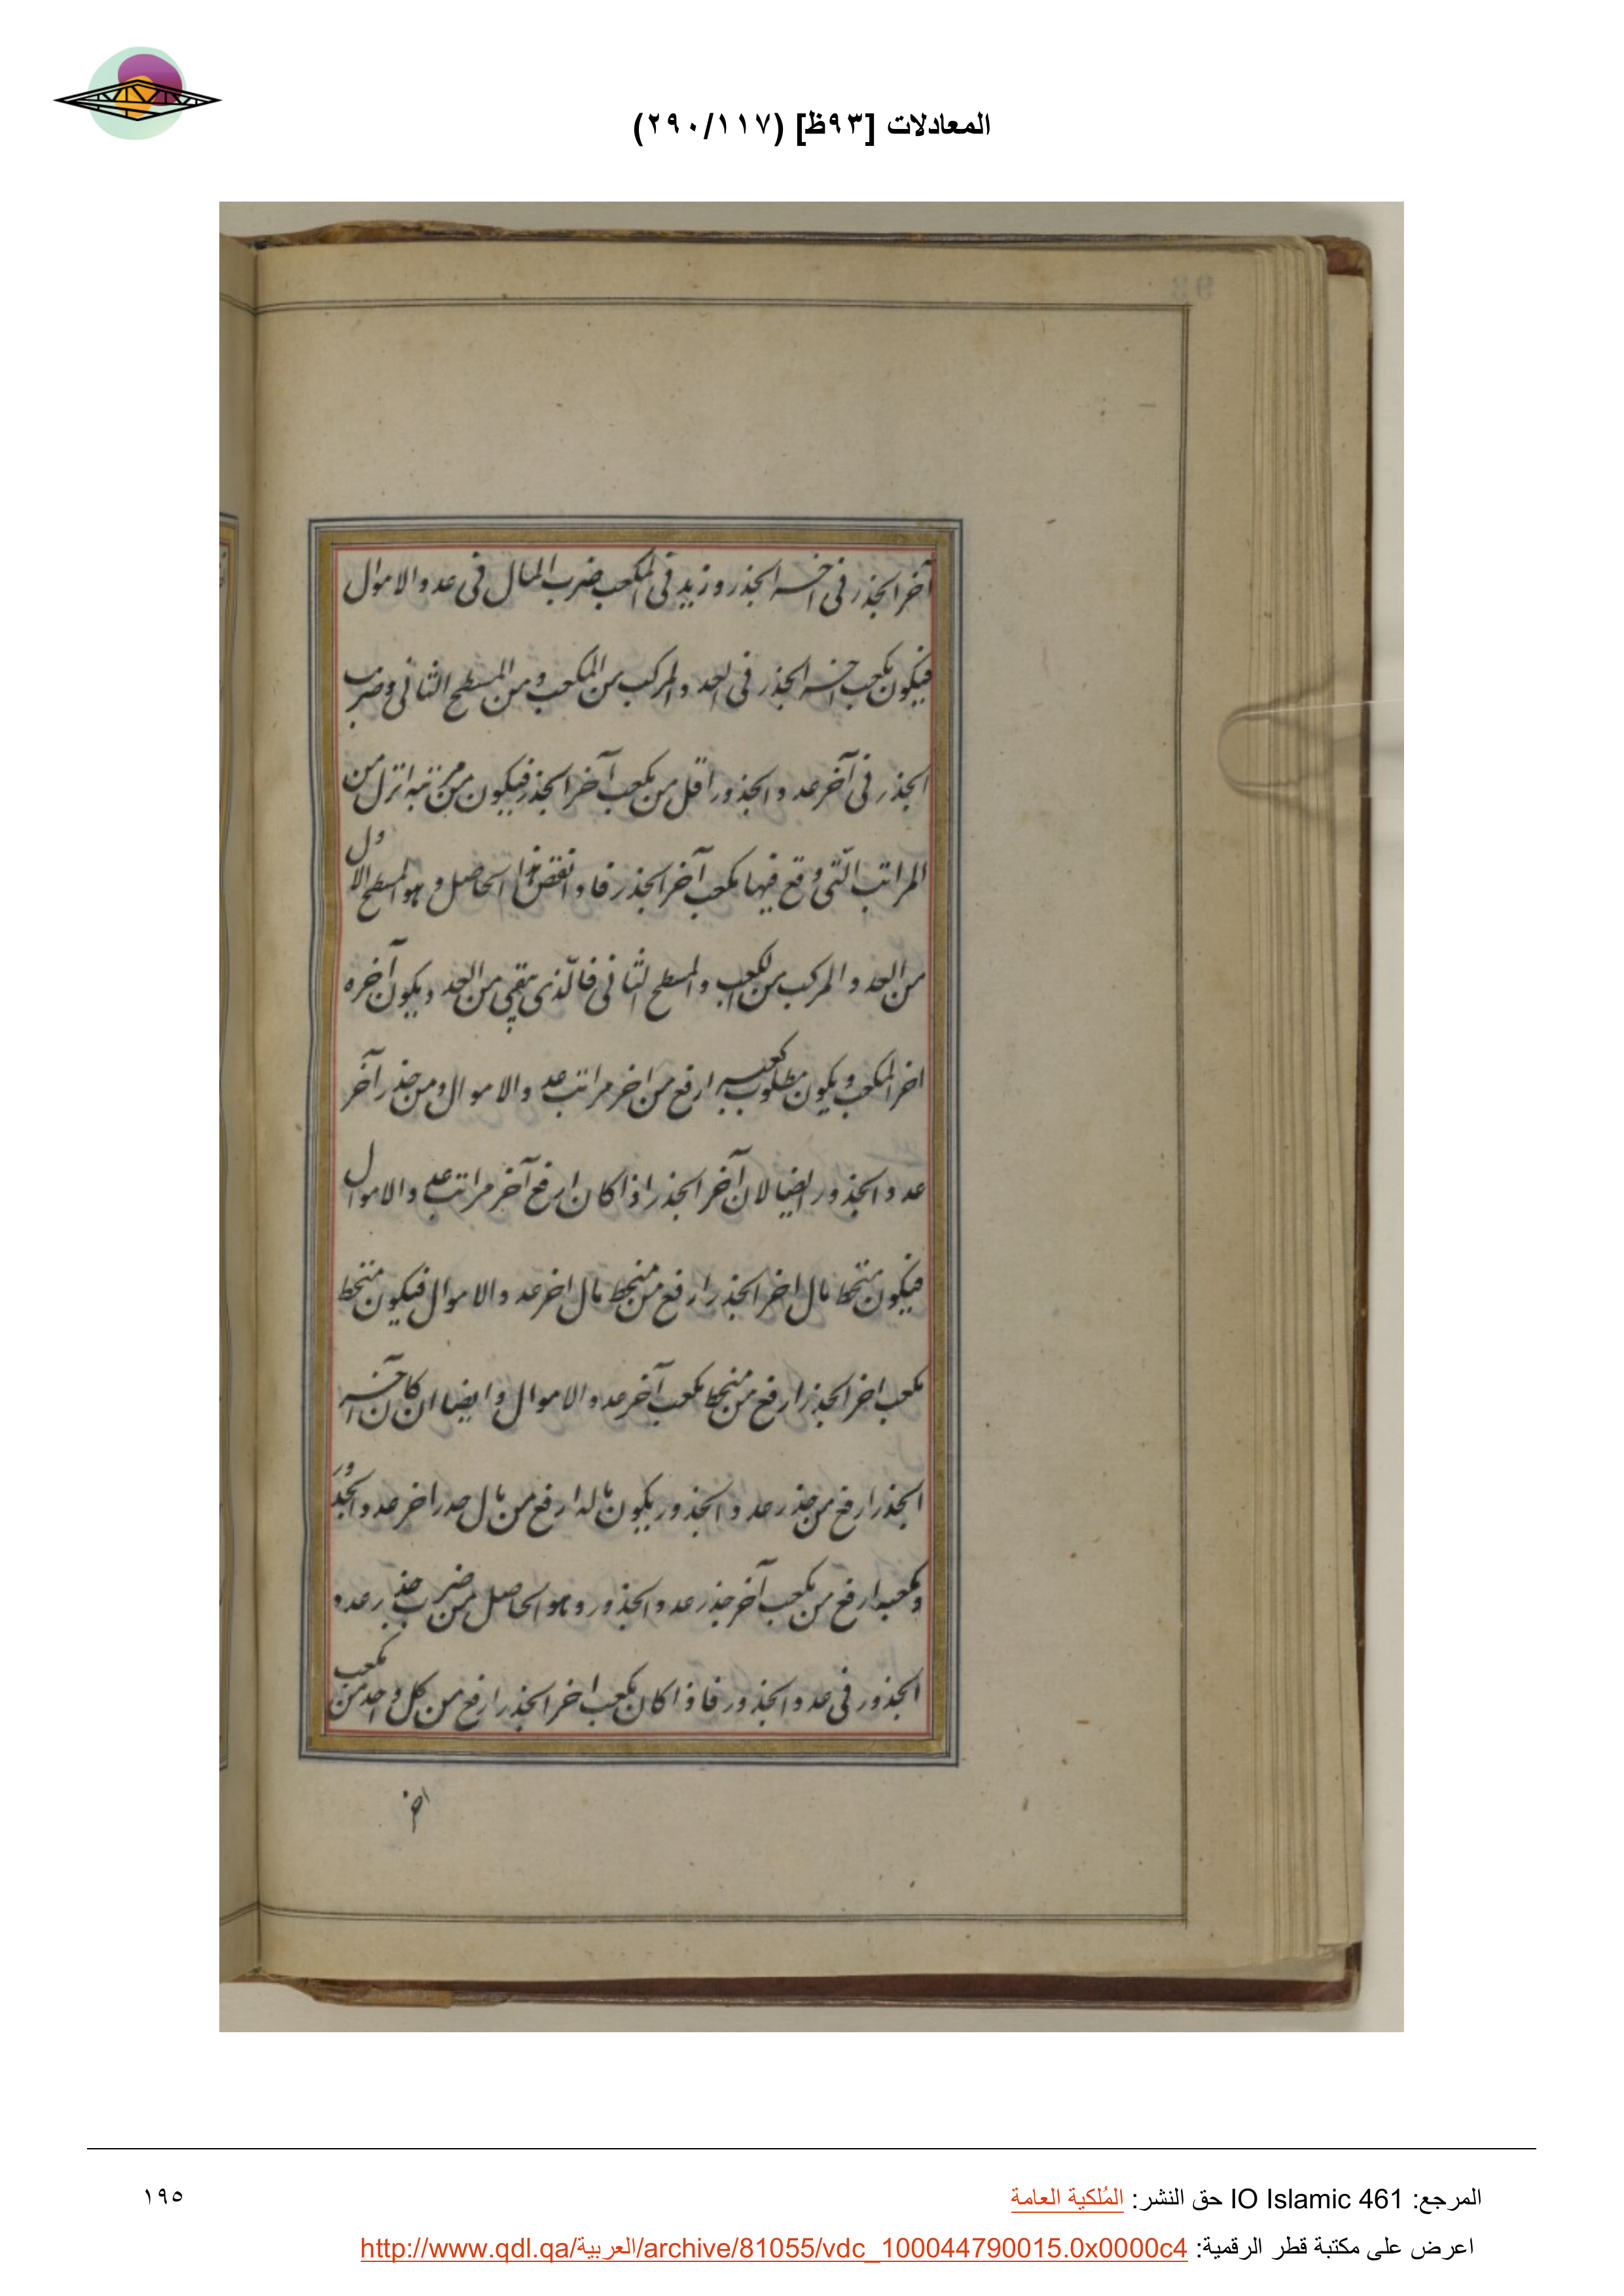 المعادلات [٩٣ظ] (٢٩٠/١١٧)
آخر الجذر فى اخسه الجذر و زيد فى المكعب ضرب المال فى عدد الاموال
فيكون مكعب اخر الجذر فى العدد المركب من المكعب و من المسطح الثانى و ضرب
الجذر فى آخر عدد الجذور اقل من مكعب آخر الجذر فيكون من مرتبة انزل من
المراتب التى وقع فيها مكعب آخر الجذر فاذا نقص هذا الحاصل و هو المسطح الاول
من العدد المركب من المكعب و المسطح الثانى فالذى يبقى من العدد يكون آخره
اخر المكعب و يكون مطلوب كعبه ارفع من اخر مراتب عدد الاموال و من جذر آخر
عدد الجذور ايضا لان آخر الجذر اذا كان ارفع آخر مراتب عدد الاموال
فيكون منحط مال اخر الجذر ارفع من منحط مال اخر عدد الاموال فيكون منحط
مكعب اخر الجذر ارفع من منحط مكعب آخر عدد الاموال و ايضا ان كان آخر
الجذر ارفع من جذر عدد الجذور يكون ماله ارفع من مال جذر اخر عدد الجذور
و مكعبه ارفع من مكعب آخر جذر عدد الجذور و هو الحاصل من ضرب جذر عدد
الجذور فى عدد الجذور فاذا كان مكعب اخر الجذر ارفع من كل واحد من مكعب
اخر
المرجع: IO Islamic 461 حق النشر: المُلكية العامة
١٩٥
اعرض على مكتبة قطر الرقمية: http://www.qdl.qa/العربية/archive/81055/vdc_100044790015.0x0000c4